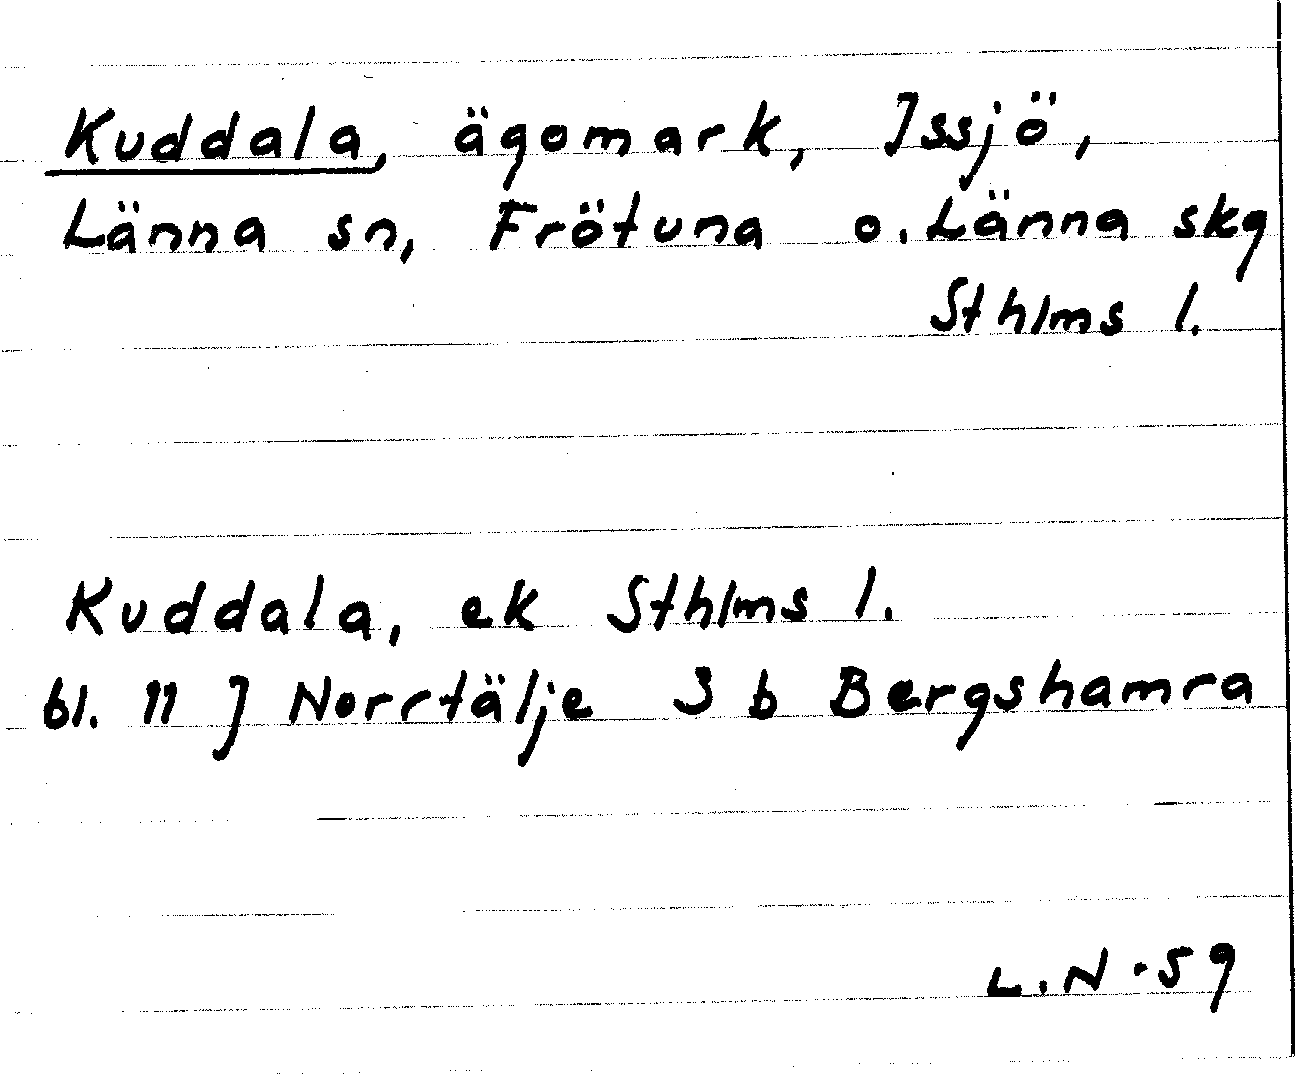 Kuddala, ägomark, Issjö,
Länna sn, Frötuna o. Länna skg
Sthlms l.
Kuddala, ek Sthlms l.
bl. 11 J Norrtälje 3 b Bergshamra
L.N -59